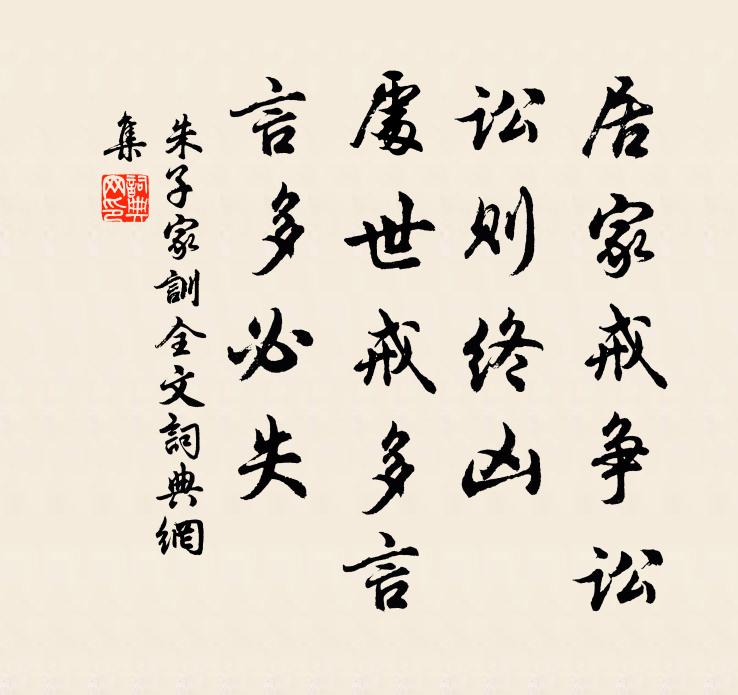 居家戒争讼
讼则终凶
處世戒多言
言多必失
朱子家訓全文詞典網
集
詞典
网印